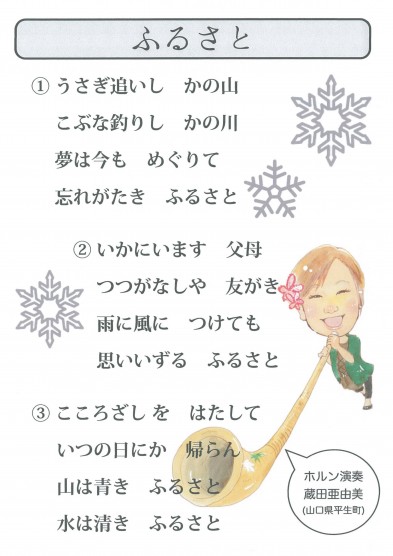 ふるさと
① うさぎ追いし　かの山
こぶな釣りし　かの川
夢は今も　めぐりて
忘れがたき　ふるさと
② いかにいます　父母
つつがなしや　友がき
雨に風に　つけても
思いいずる　ふるさと
③ こころざし を　はたして
いつの日にか　帰らん
山は青き　ふるさと
水は清き　ふるさと
ホルン演奏
蔵田亜由美
(山口県平生町)